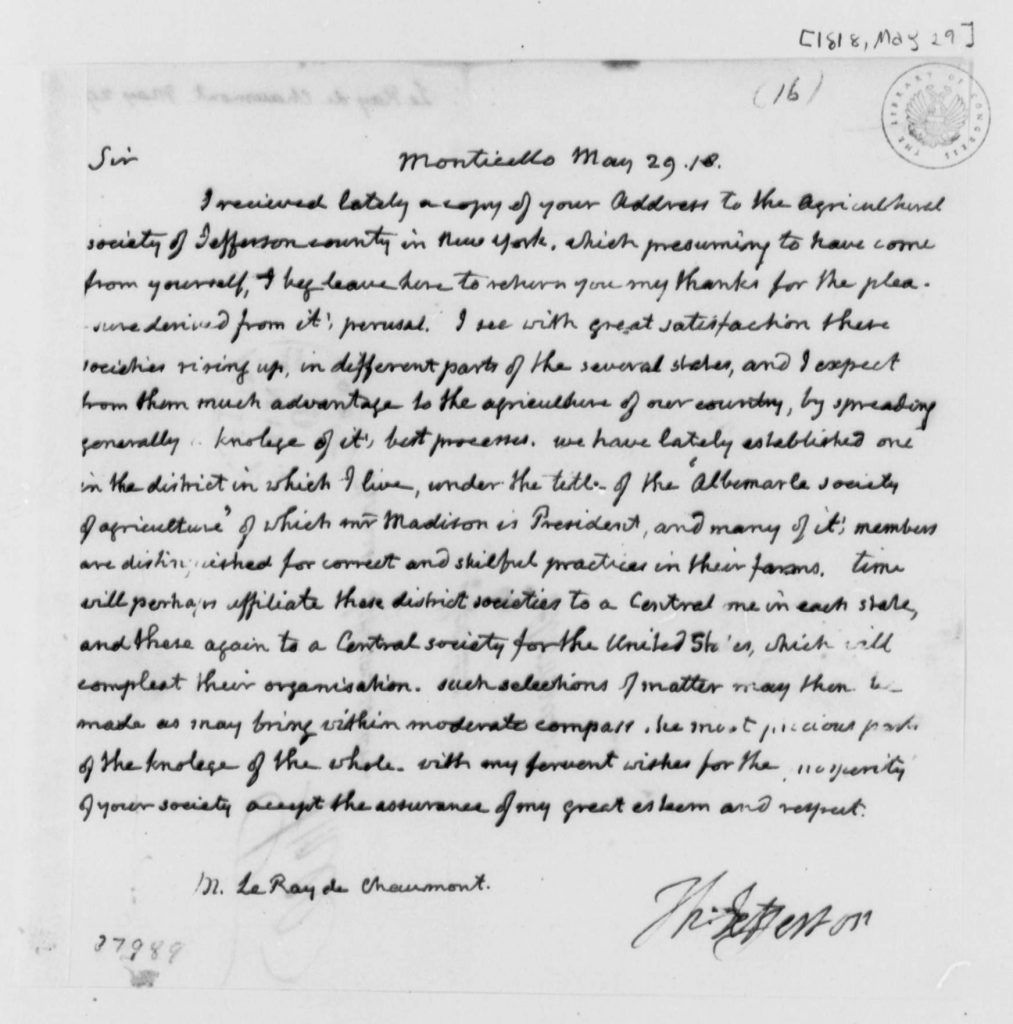 [1818, May 29]
(16)
THE LIBRARY OF CONGRESS
Sir Monticello May 29. 18.
I recieved lately a copy of your Address to the Agricultural
society of Jefferson county in New York, which presuming to have come
from yourself, I beg leave here to return you my thanks for the plea-
sure derived from it's perusal. I see with great satisfaction these
societies rising up, in different parts of the several states, and I expect
from them much advantage to the agriculture of our country, by spreading
generally a knolege of it's best processes. we have lately established one
in the district in which I live, under the title of the "Albemarle society
of agriculture" of which mr Madison is President, and many of it's members
are distinguished for correct and skilful practices in their farms. time
will perhaps affiliate these district societies to a Central one in each state,
and these again to a Central society for the United States, which will
compleat their organisation. such selections of matter may then be
made as may bring within moderate compass the most precious parts
of the knolege of the whole. with my fervent wishes for the prosperity
of your society accept the assurance of my great esteem and respect.
M. Le Ray de Chaumont.
Th: Jefferson
37989